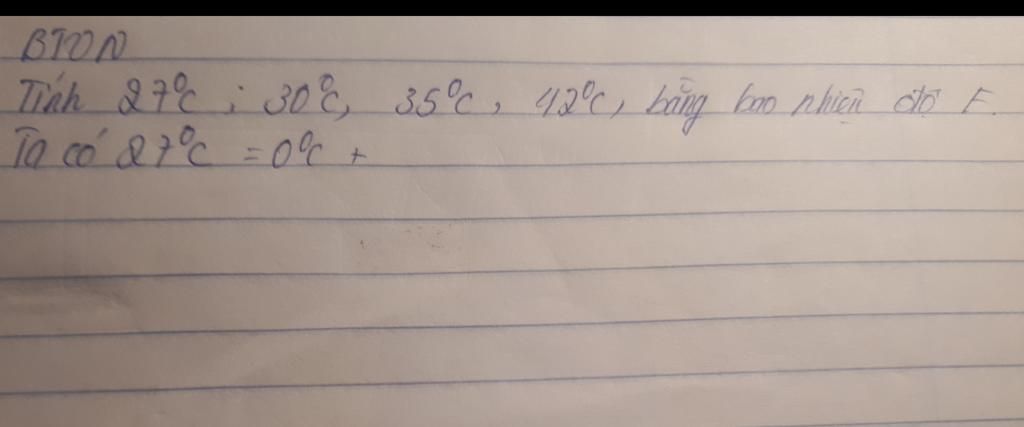 BTVN
Tính 27°C ; 30°C, 35°C, 42°C, bằng bao nhiêu độ F.
Ta có 27°C = 0°C +